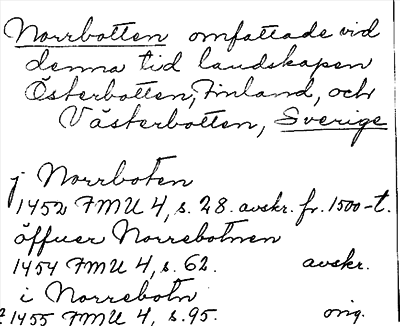 Norrbotten omfattade vid
denna tid landskapen
Österbotten, Finland, och
Västerbotten, Sverige
j Norrboten
1452 FMU 4, s. 28. avskr. fr. 1500-t.
öffuer Norrebotnen
1454 FMU 4, s. 62. avskr.
i Norrebotn
1455 FMU 4, s. 95. orig.